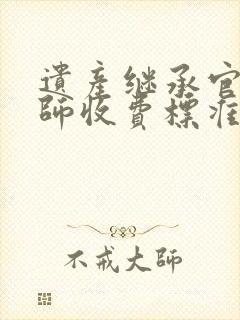 遺產继承官
師收費標准
不戒大师